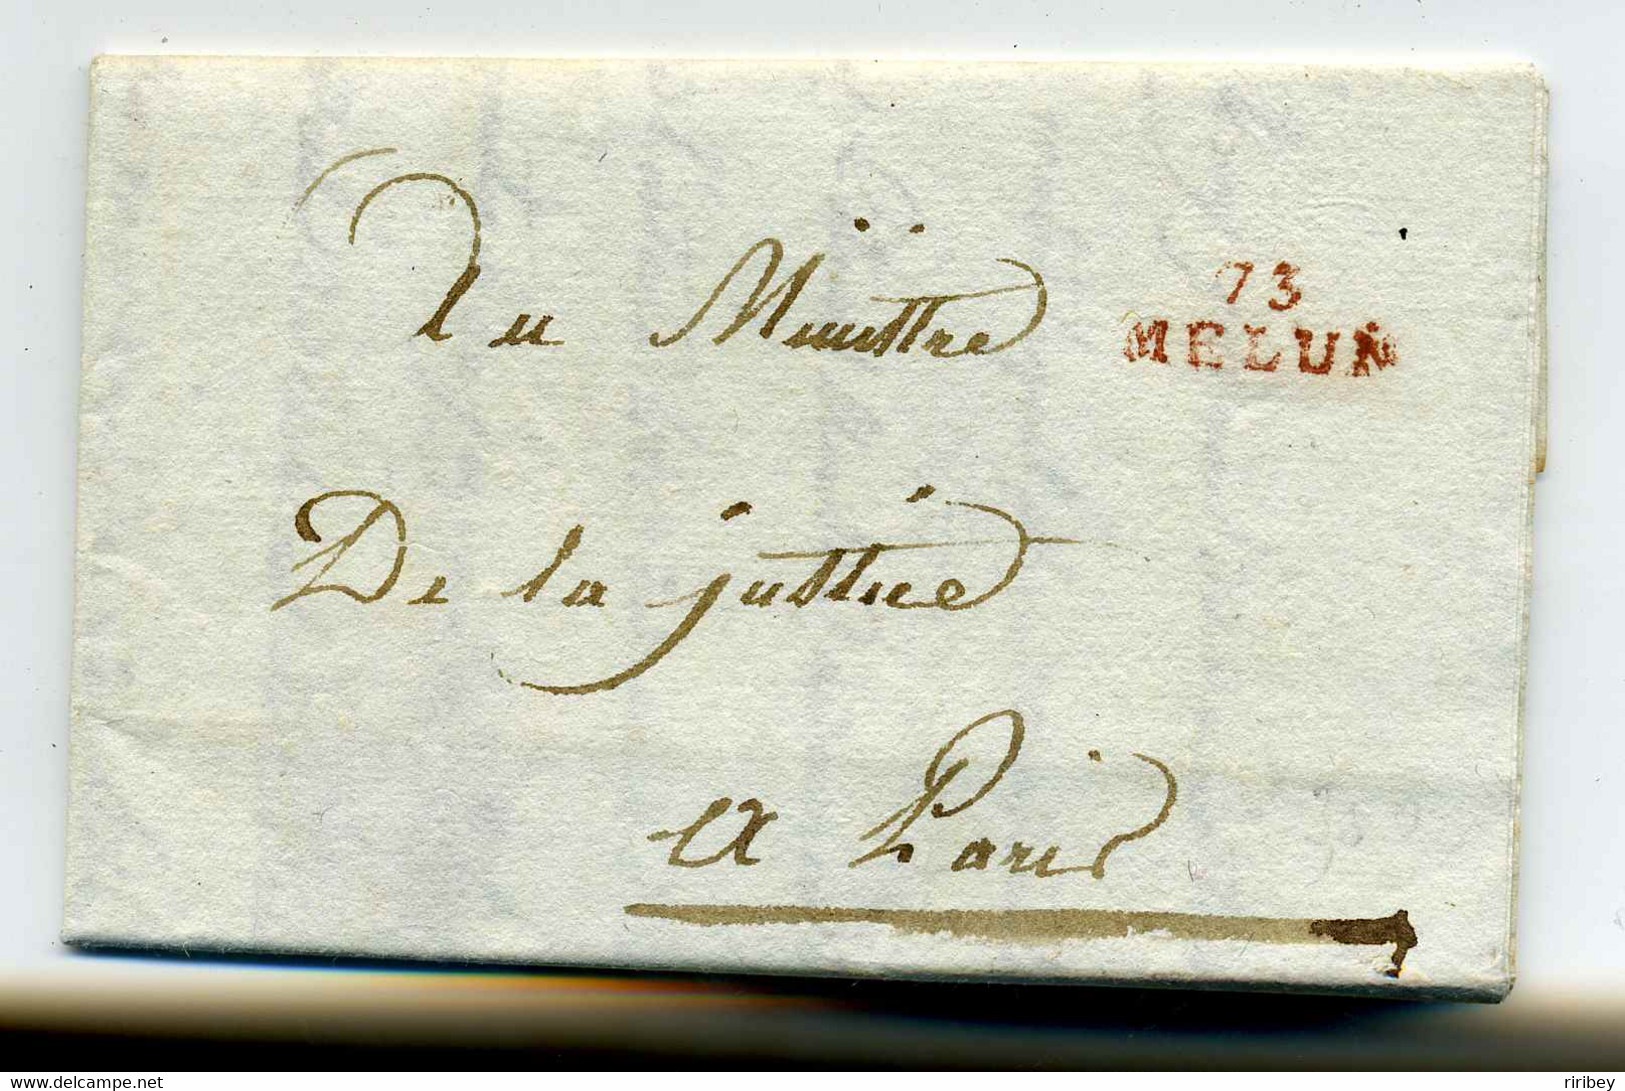 Au Ministre
73
MELUN
De la justice
a Paris
www.delcampe.net
riribey